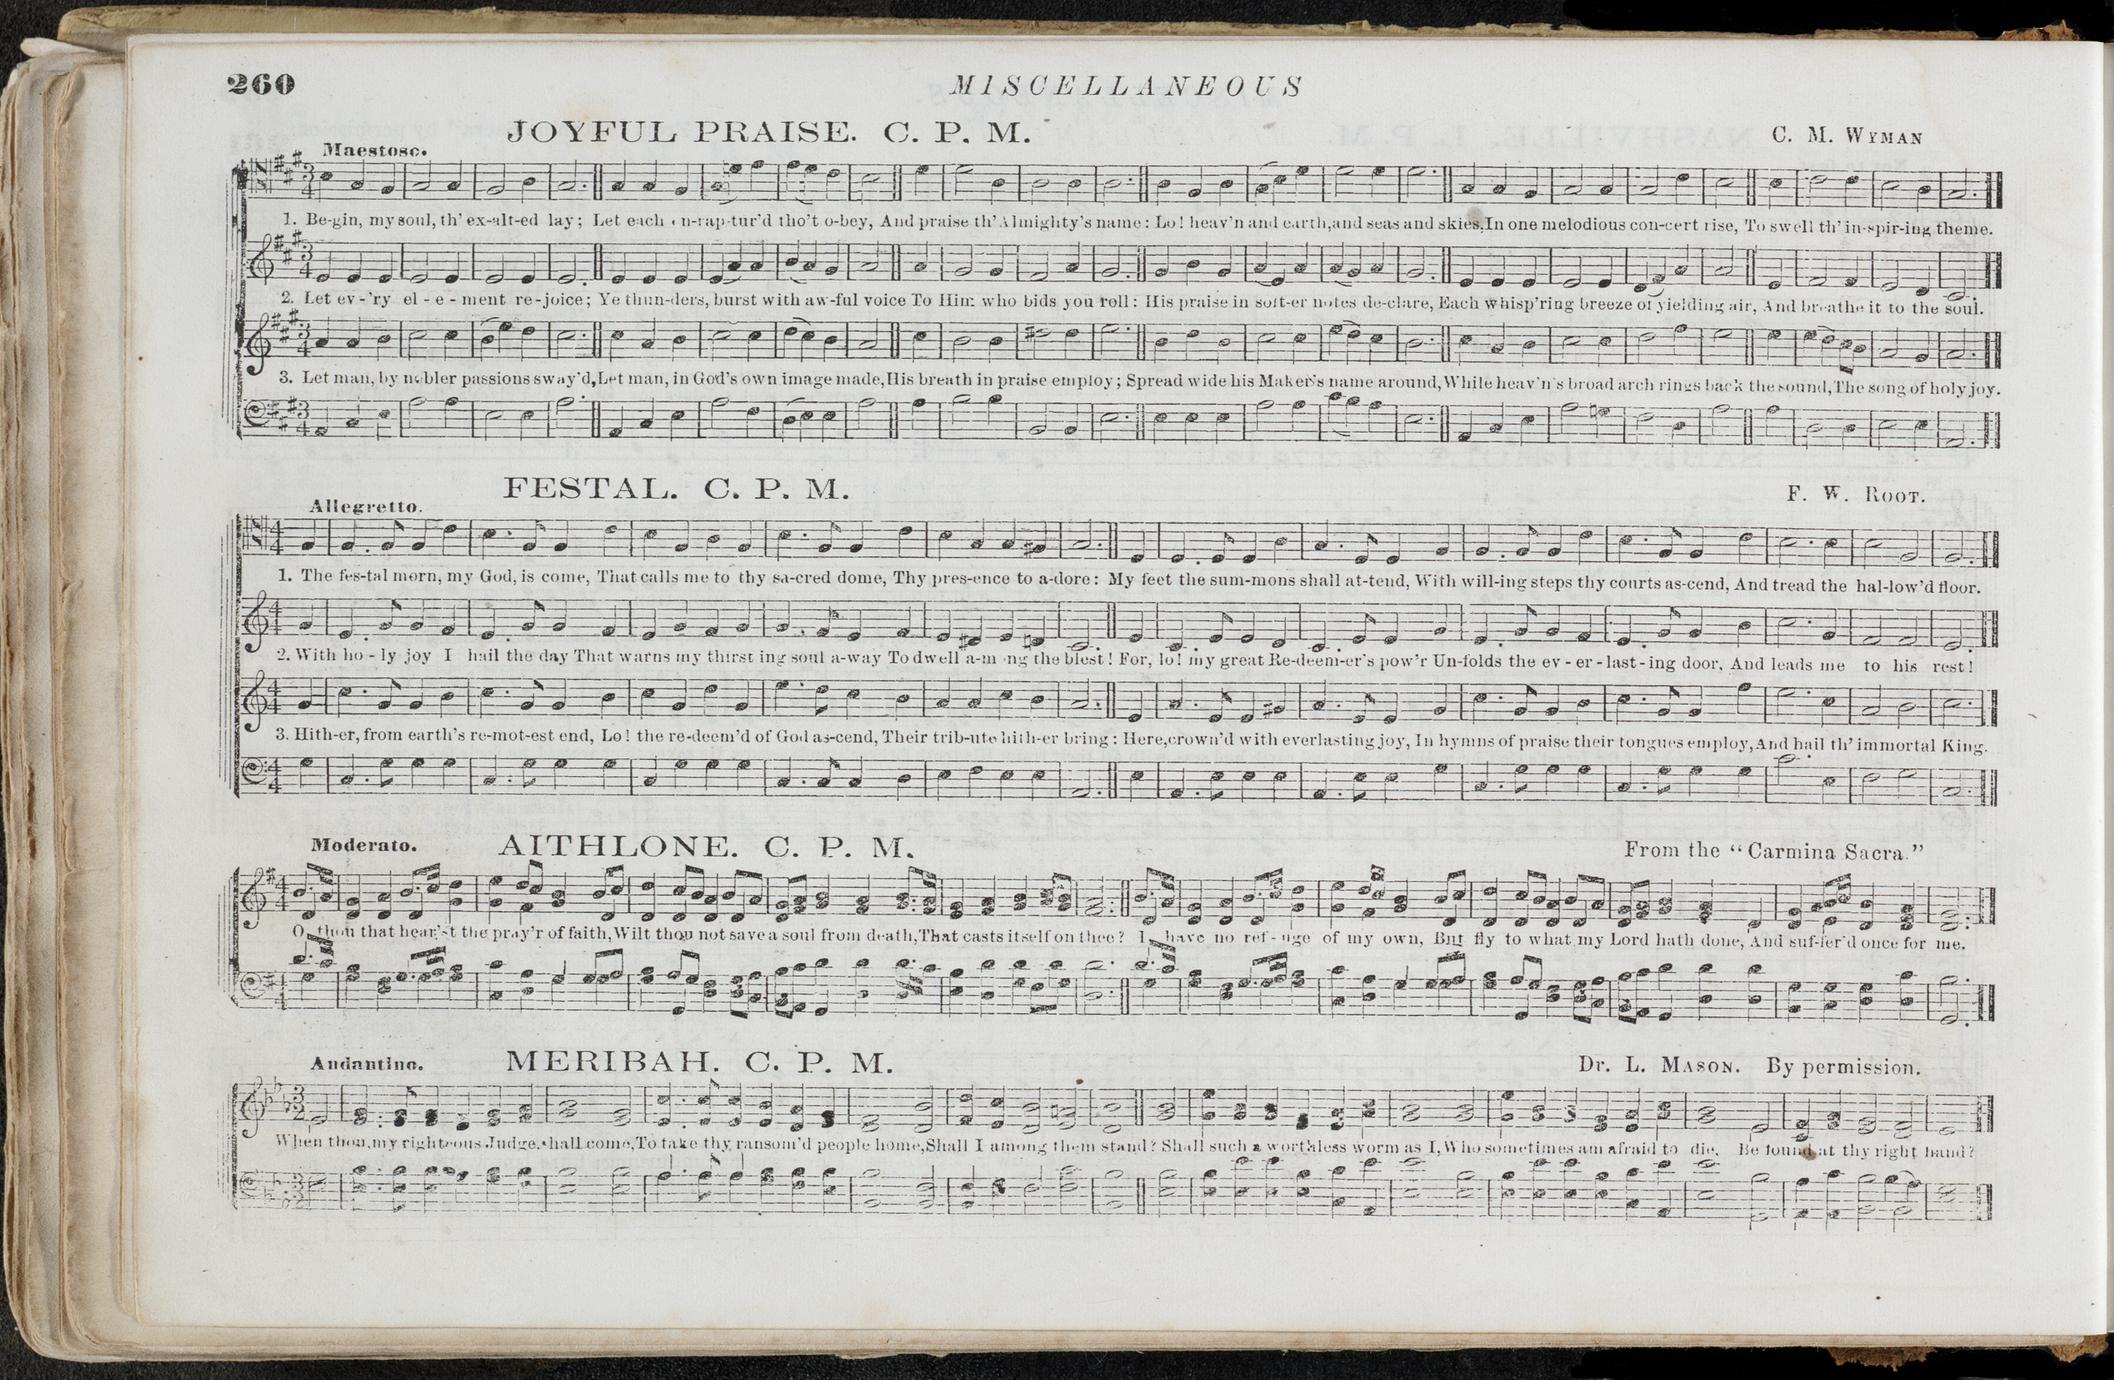 260
MISCELLANEOUS
JOYFUL PRAISE. C. P. M.
C. M. WYMAN
Maestoso.
1. Be-gin, my soul, th' ex-alt-ed lay; Let each en-rap-tur'd tho't o-bey, And praise th' Almighty's name: Lo! heav'n and earth, and seas and skies, In one melodious con-cert rise, To swell th' in-spir-ing theme.
2. Let ev-'ry el-e-ment re-joice; Ye thun-ders, burst with aw-ful voice To Him who bids you roll: His praise in soft-er notes de-clare, Each whisp'ring breeze of yielding air, And breathe it to the soul.
3. Let man, by nobler passions sway'd, Let man, in God's own image made, His breath in praise employ; Spread wide his Maker's name around, While heav'n's broad arch rings back the sound, The song of holy joy.
FESTAL. C. P. M.
F. W. ROOT.
Allegretto.
1. The fes-tal morn, my God, is come, That calls me to thy sa-cred dome, Thy pres-ence to a-dore: My feet the sum-mons shall at-tend, With will-ing steps thy courts as-cend, And tread the hal-low'd floor.
2. With ho-ly joy I hail the day That warns my thirst ing soul a-way To dwell a-mong the blest! For, lo! my great Re-deem-er's pow'r Un-folds the ev-er-last-ing door, And leads me to his rest!
3. Hith-er, from earth's re-mot-est end, Lo! the re-deem'd of God as-cend, Their trib-ute hith-er bring: Here, crown'd with everlasting joy, In hymns of praise their tongues employ, And hail th' immortal King.
Moderato.
AITHLONE. C. P. M.
From the "Carmina Sacra."
O thou that hear'st the pray'r of faith, Wilt thou not save a soul from death, That casts itself on thee? I have no ref-uge of my own, But fly to what my Lord hath done, And suf-fer'd once for me.
Andantino.
MERIBAH. C. P. M.
Dr. L. MASON. By permission.
When thou, my righteous Judge, shall come, To take thy ransom'd people home, Shall I among them stand? Shall such a worthless worm as I, Who sometimes am afraid to die, Be found at thy right hand?